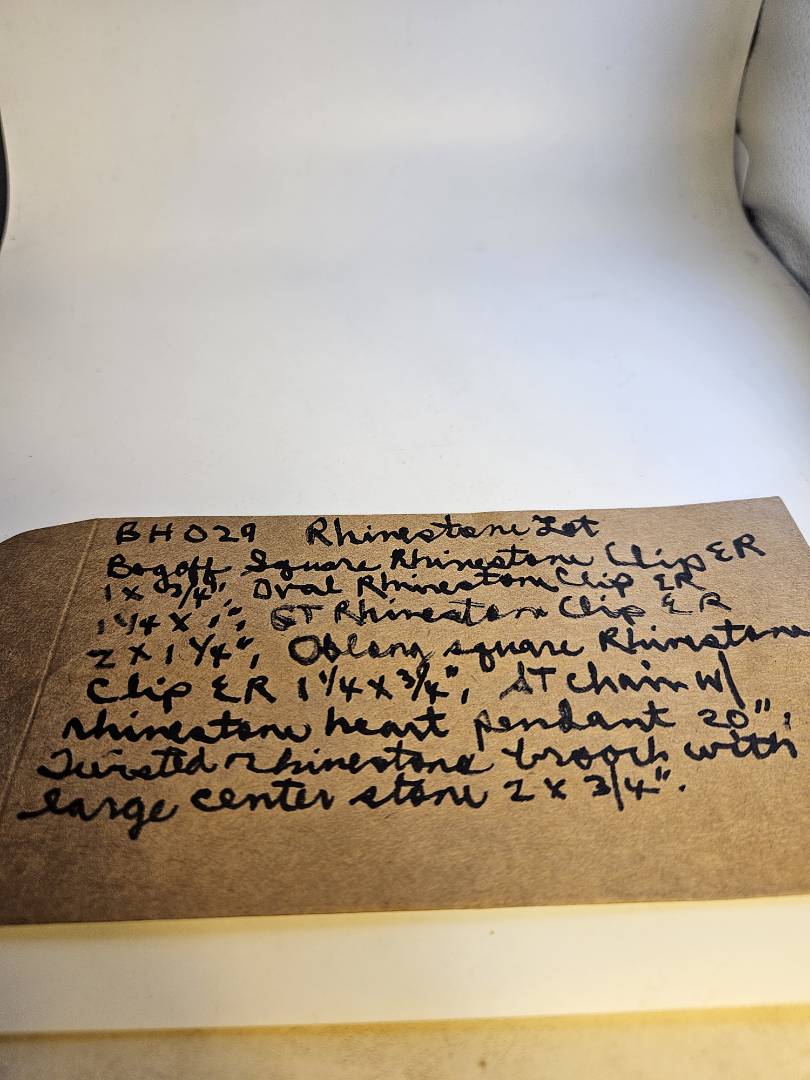 BH029 Rhinestone Lot
Bogoff Square Rhinestone Clip ER
1 x 3/4", Oval Rhinestone Clip ER
1 1/4 x 1", ST Rhinestone Clip ER
2 x 1 1/4", Oblong square Rhinestone
Clip ER 1 1/4 x 3/4", ST chain w/
rhinestone heart pendant 20",
Twisted rhinestone brooch with
large center stone 2 x 3/4".